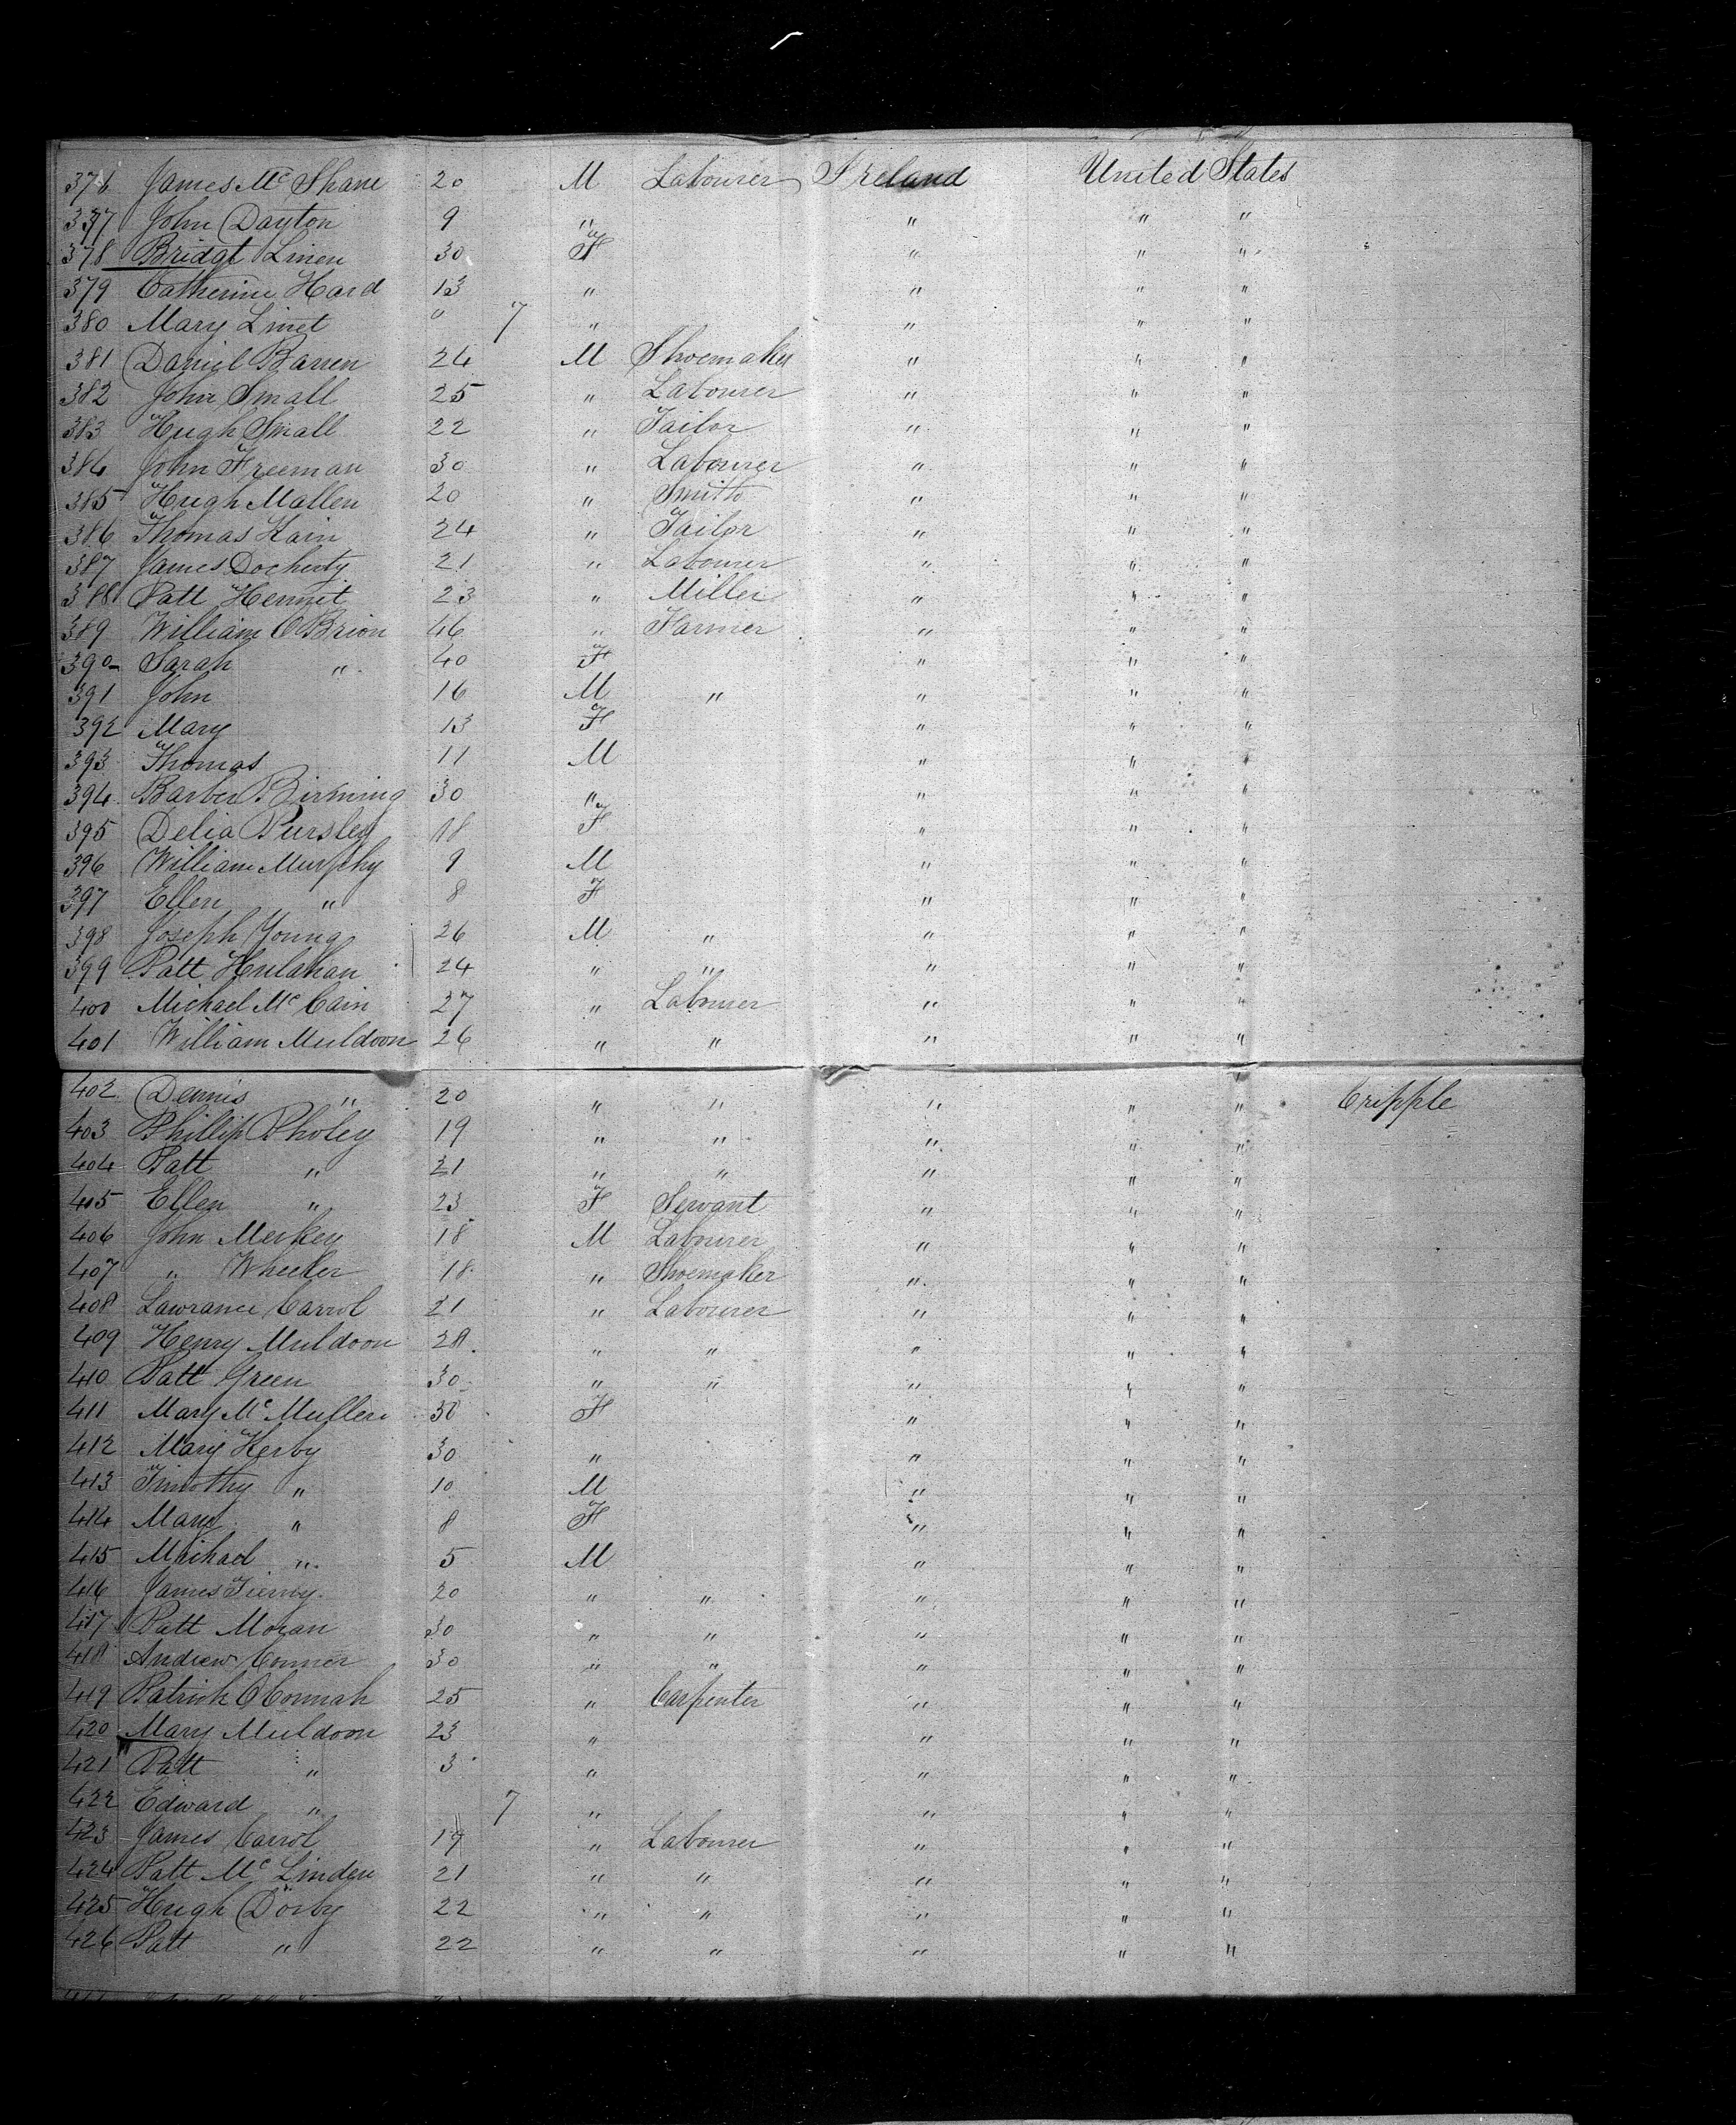 376 James Mc Shane 20 M Labourer Ireland United States
337 John Dayton 9 " " " "
378 Bridgt Linen 30 F " " "
379 Catherine Hard 13 " " " "
380 Mary Linet " 7 " " " "
381 Daniel Barren 24 M Shoemaker " " "
382 John Small 25 " Labourer " " "
383 Hugh Small 22 " Tailor " " "
384 John Freeman 30 " Labourer " " "
385 Hugh Mallen 20 " Smith " " "
386 Thomas Kain 24 " Tailor " " "
387 James Docherty 21 " Labourer " " "
388 Patt Hennit 23 " Miller " " "
389 William O Brion 46 " Farmer " " "
390 Sarah " 40 F " " "
391 John 16 M " " " "
392 Mary 13 F " " "
393 Thomas 11 M " " "
394 Barber Birming 30 " " " "
395 Delia Pursley 18 F " " "
396 William Murphy 9 M " " "
397 Ellen " 8 F " " "
398 Joseph Young 26 M " " " "
399 Patt Hulahan 24 " " " " "
400 Michael Mc Cain 27 " Labourer " " "
401 William Muldoon 26 " " " " "
402 Dennis " 20 " " " " " Cripple
403 Phillip Pholey 19 " " " " "
404 Patt " 21 " " " " "
405 Ellen " 23 F Servant " " "
406 John Merkey 18 M Labourer " " "
407 " Wheeler 18 " Shoemaker " " "
408 Lawrance Carrol 21 " Labourer " " "
409 Henry Muldoon 28 " " " " "
410 Patt Green 30 " " " " "
411 Mary Mc Mullen 30 F " " "
412 Mary Kerby 30 " " " "
413 Timothy " 10 M " " "
414 Mary " 8 F " " "
415 Maihael " 5 M " " "
416 James Tierny 20 " " " " "
417 Patt Moran 30 " " " " "
418 Andrew Conner 30 " " " " "
419 Patrick O Connah 25 " Carpenter " " "
420 Mary Muldoon 23 " " " "
421 Patt " 3 " " " "
422 Edward " 7 " " " "
423 James Carrol 19 " Labourer " " "
424 Patt Mc Linden 21 " " " " "
425 Hugh Dorby 22 " " " " "
426 Patt " 22 " " " " "